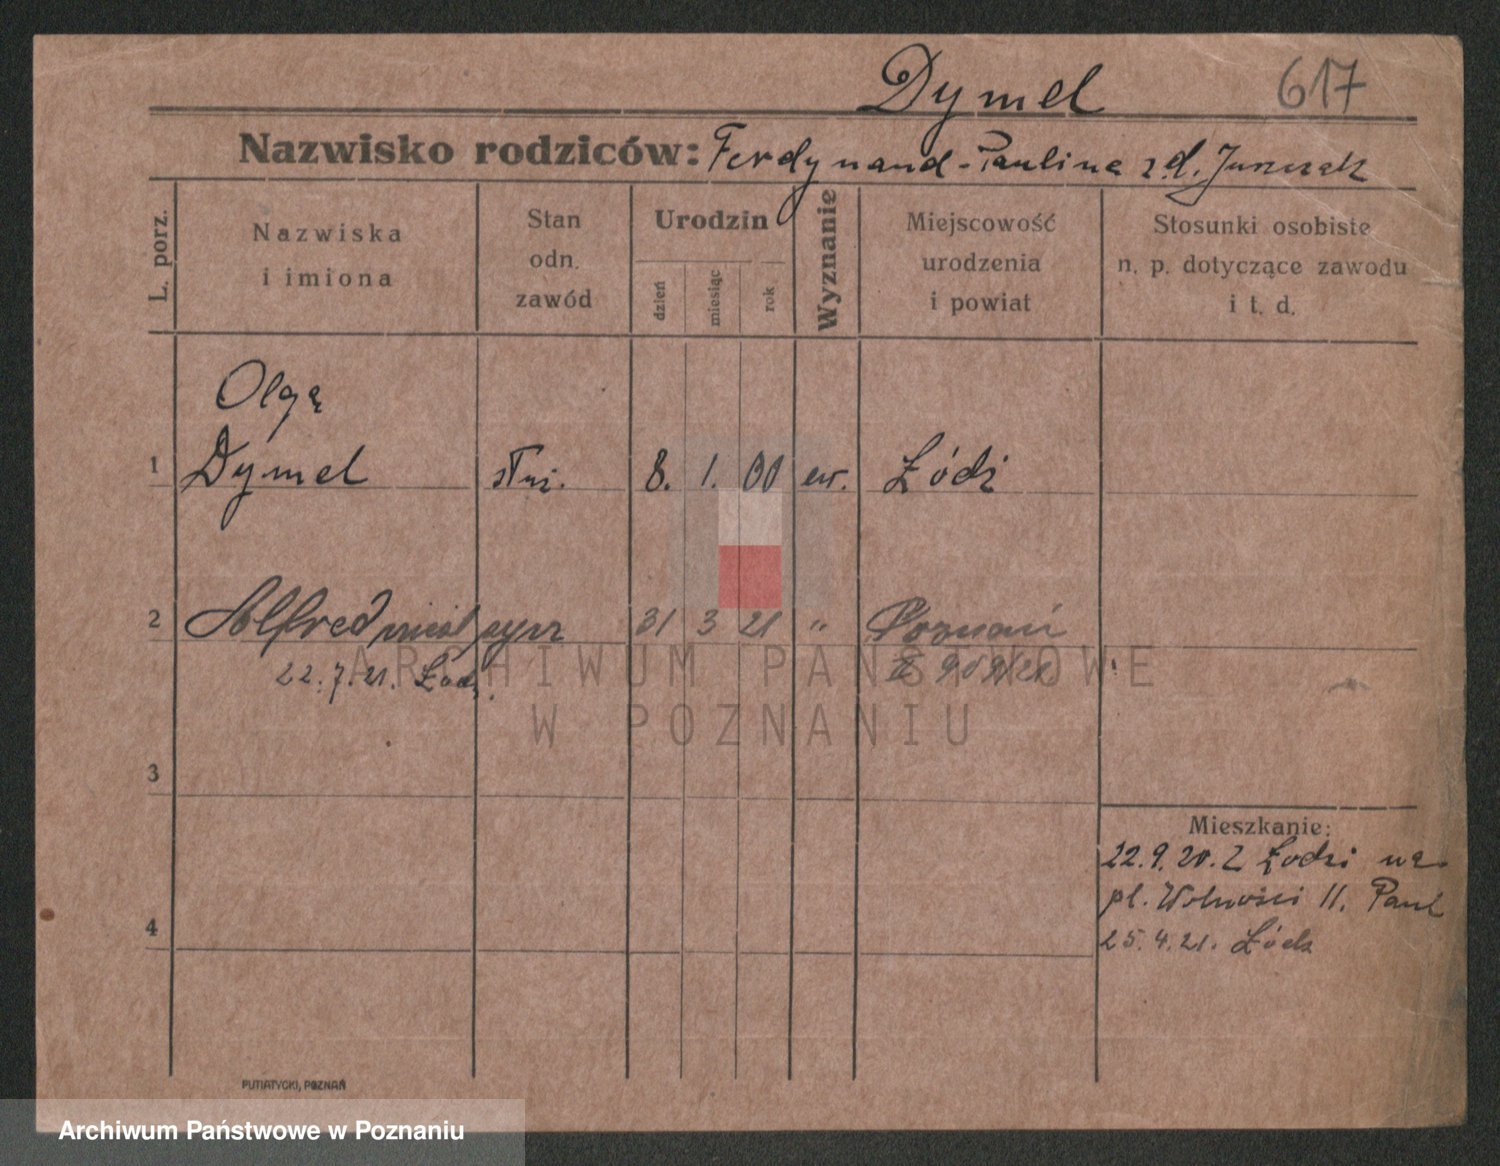 Dymel 617
Nazwisko rodziców: Ferdynand - Paulina z d. Juszczak
L. porz.
Nazwiska
i imiona
Stan
odn.
zawód
Urodzin
dzień
miesiąc
rok
Wyznanie
Miejscowość
urodzenia
i powiat
Stosunki osobiste
n. p. dotyczące zawodu
i t. d.
Olga
1 Dymel służ. 8. 1. 00 ew. Łódź
2 Alfred syn 31 3 21 " Poznań
22.7.21. Łódź.
ARCHIWUM PAŃSTWOWE
W POZNANIU
3
Mieszkanie:
22.9.20. Z Łodzi na
pl. Wolności 11. Paul
4
25.4.21. Łódź
PUTIATYCKI, POZNAŃ
Archiwum Państwowe w Poznaniu